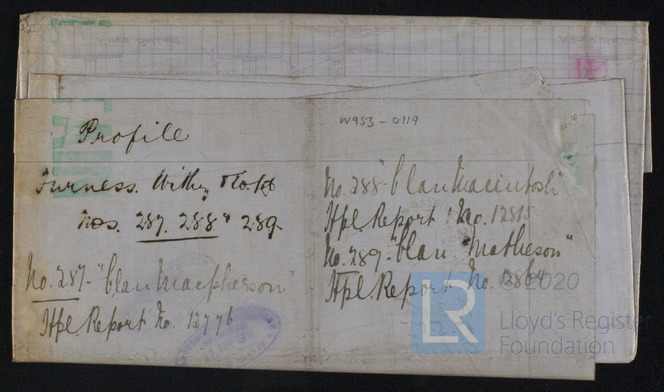 W953-0119
Profile
Furness. Withy & Co Ld
Nos. 287. 288 & 289
No. 287- "Clan Macpherson"
Hpl. Report No. 12776
No. 288- "Clan Macintosh"
Hpl. Report No. 12815
No. 289- "Clan Matheson"
Hpl. Report No.
© 2020
LR
Lloyd's Register
Foundation